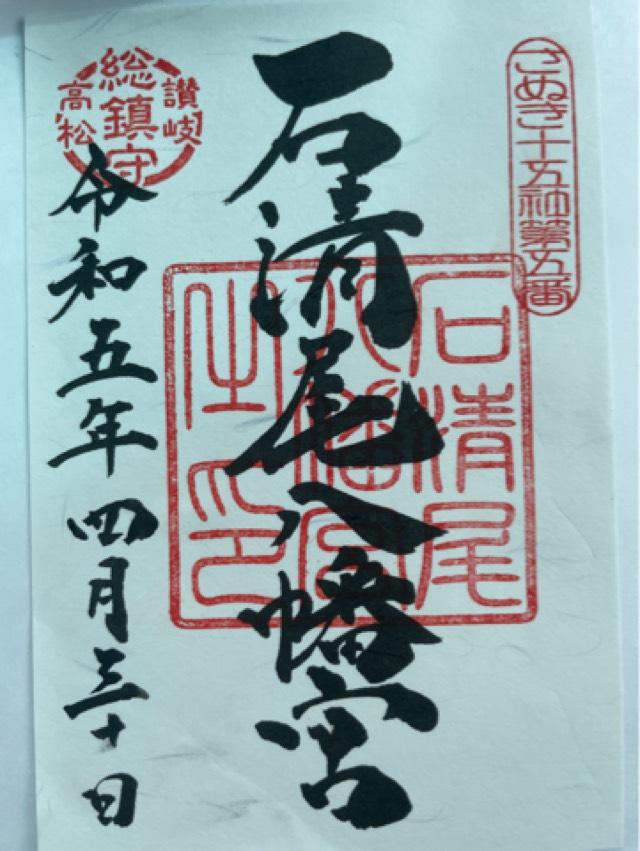 さぬき十五社第五番
石清尾八幡宮
石清尾
八幡宮
之印
讃岐
総鎮守
高松
令和五年四月三十日